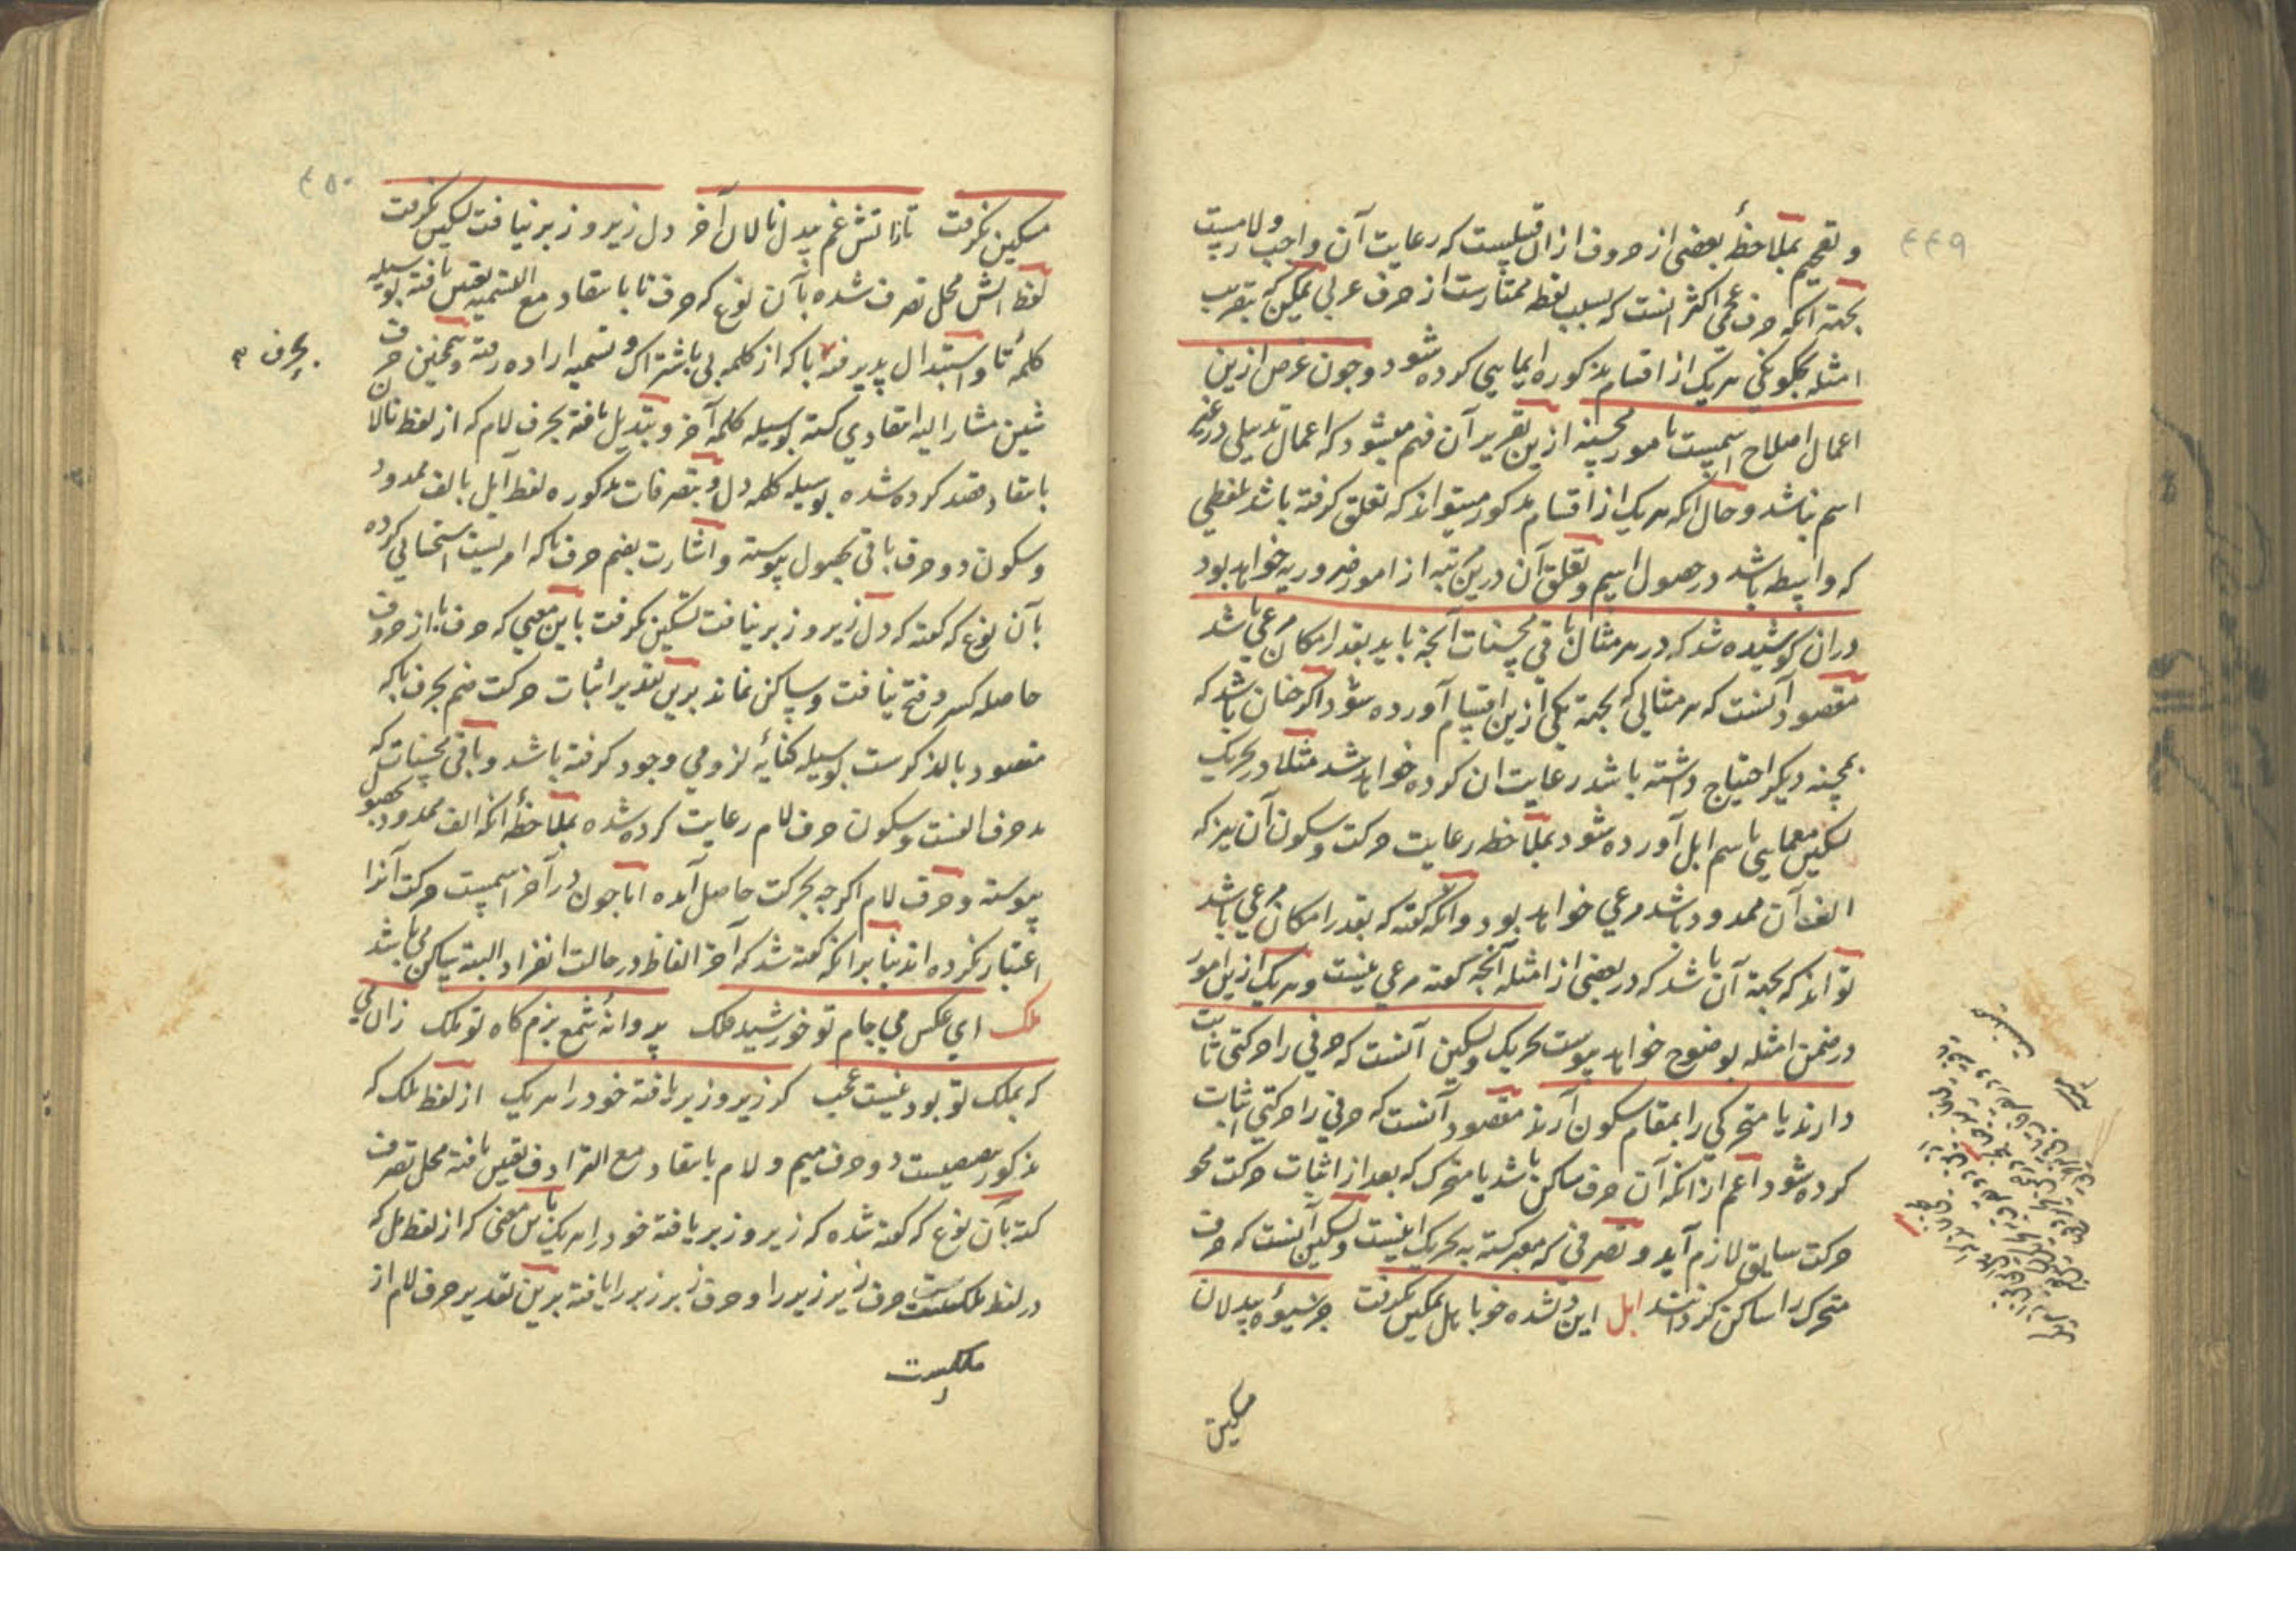 ۴۴۹
و تعجیم بملاحظهٔ بعضی از حروف از ان قبیلیست که رعایت آن واجب و لازمیست
بجهة انکه حرف عجمی اکثر انست که بسبب نقطه ممتازست از حرف عربی لیکن بتقریب
امثله بچگونکی هر یک از اقسام مذکوره ایمایی کرده شود و چون غرض ازین
اعمال اصلاح اسمیست با مور محسنه ازین تقریر آن فهم میشود که اعمال تذییلی در غیر
اسم نباشد و حال انکه هر یک از اقسام مذکور میتواند که تعلق کرفته باشد بلفظی
که واسطه باشد در حصول اسم و تعلق آن درین مرتبه از امور ضروریه خواهد بود
دران کوشیده شد که در هر مثال باقی محسنات آنچه باید بقدر امکان مرعی باشد
مقصود آنست که هر مثالی که بجهة یکی ازین اقسام آورده شود اگر چنان باشد که
بمحسنه دیکر احتیاج داشته باشد رعایت ان کرده خواهد شد مثلا در تحریک
تسکین معمایی باسم ابل آورده شود بملاحظه رعایت حرکت و سکون آن نیز که
الف آن ممدود باشد مرعی خواهد بود و انکه گفته که بقدر امکان مرعی باشد
تواند که بجهة آن باشد که در بعضی از امثله آنچه گفته مرعی نیست و هر یک ازین امور
در ضمن امثله بوضوح خواهد پیوست تحریک و تسکین آنست که حرفی را حرکتی ثابت
دارند یا متحرکی را بمقام سکون آرند مقصود آنست که حرفی را حرکتی اثبات
کرده شود اعم از انکه آن حرف ساکن باشد یا متحرک که بعد از اثبات حرکت محو
حرکت سابق لازم آید و تصرفی که معبر کشته به تحریک اینست و تسکین آنست که حرف
متحرک را ساکن کردانند ابل این دلشده خو با بل تمکین نکرفت جز شیوهٔ بیدلان
مسکین
۴۵۰
مسکین نکرفت تا زاتش غم بیدل نالان آخر دل زیر و زبر نیافت تسکین نکرفت
لفظ اتش محل تصرف شده بآن نوع که حرف تا بانتقاد مع التسمیه تعیین یافته بوسیله
کلمهٔ تا و استبدال پذیرفته با که از کلمه بی باشتراک و تسمیه اراده رفته و همچنین حرف
بحرف ۳
شین مشار الیه انتقادی کشته بوسیله کلمه آخر و تبدیل یافته بحرف لام که از لفظ نالان
بانتقاد قصد کرده شده بوسیله کلمه دل و بتصرفات مذکوره لفظ آبل بالف ممدود
و سکون دو حرف باقی بحصول پیوسته و اشارت بضم حرف با که امریست استحسانی کرده
بآن نوع که گفته که دل زیر و زبر نیافت تسکین نکرفت باین معنی که حرف با از حروف
حاصله کسر و فتح نیافت و ساکن نماند برین تقدیر اثبات حرکت ضم بحرف با که
مقصود بالذکرست بوسیله کنایهٔ لزومی وجود کرفته باشد و باقی محسنات که
مد حرف الفست و سکون حرف لام رعایت کرده شده بملاحظهٔ انکه الف ممدود بحصول
پیوسته و حرف لام اکرچه بحرکت حاصل آمده اما چون در آخر اسمیست حرکت آنرا
اعتبار نکرده اند بنا برانکه گفته شد که آخر الفاظ در حالت انفراد البته ساکن می باشد
ملک ای عکس می جام تو خورشید فلک پروانهٔ شمع بزم کاه تو ملک زان می
که بملک تو بود نیست عجب کر زیر و زبر یافته خود را هر یک از لفظ ملک که
مذکور دو حرف میم و لام بانتقاد مع الترادف تعیین یافته محل تصرف
کشته بآن نوع که گفته شده که زیر و زبر یافته خود را هر یک باین معنی که از لفظ مل که
در لفظ ملکست حرف زیر زیر را و حرف زبر زبر را یافته برین تقدیر حرف لام از
ملکست